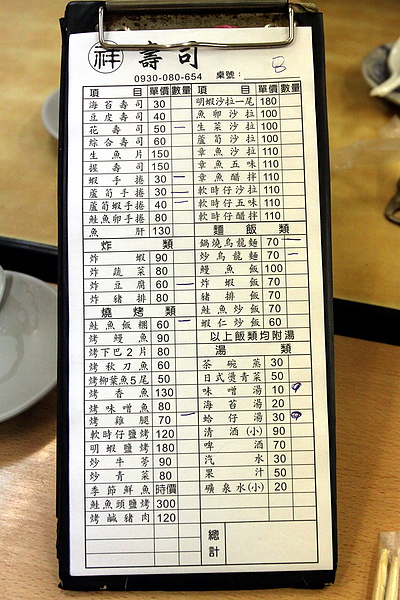 祥 壽司
0930-080-654 桌號：
8
項 目 單價 數量
海苔壽司 30
豆皮壽司 40
花壽司 50 一
綜合壽司 60
生魚片 150
握壽司 150
蝦手捲 30 一
蘆筍手捲 30 一
蘆筍蝦手捲 40 一
鮭魚卵手捲 80
魚肝 130
炸 類
炸蝦 90
炸蔬菜 80
炸豆腐 60 一
炸豬排 80
燒烤類
鮭魚飯糰 60 一
烤鰻魚 90
烤下巴2片 80
烤秋刀魚 60
烤柳葉魚5尾 50
烤香魚 130
烤味噌魚 80
烤雞腿 70 一
軟時仔鹽烤 120
明蝦鹽烤 180
炒牛蒡 90
炒青菜 80
季節鮮魚 時價
鮭魚頭鹽烤 300
烤鹹豬肉 120
項 目 單價 數量
明蝦沙拉一尾 180
魚卵沙拉 100
生菜沙拉 100
蘆筍沙拉 100
章魚沙拉 110
章魚五味 110
章魚醋拌 110
軟時仔沙拉 110
軟時仔五味 110
軟時仔醋拌 110
麵飯類
鍋燒烏龍麵 70 一
炒烏龍麵 70 一
鰻魚飯 100
炸蝦飯 70
豬排飯 70
鮭魚炒飯 70
蝦仁炒飯 60
以上飯類均附湯
湯 類
茶碗蒸 30
日式燙青菜 50
味噌湯 10
海苔湯 20
蛤仔湯 30
清酒(小) 90
啤酒 70
汽水 30
果汁 50
礦泉水(小) 20
總計